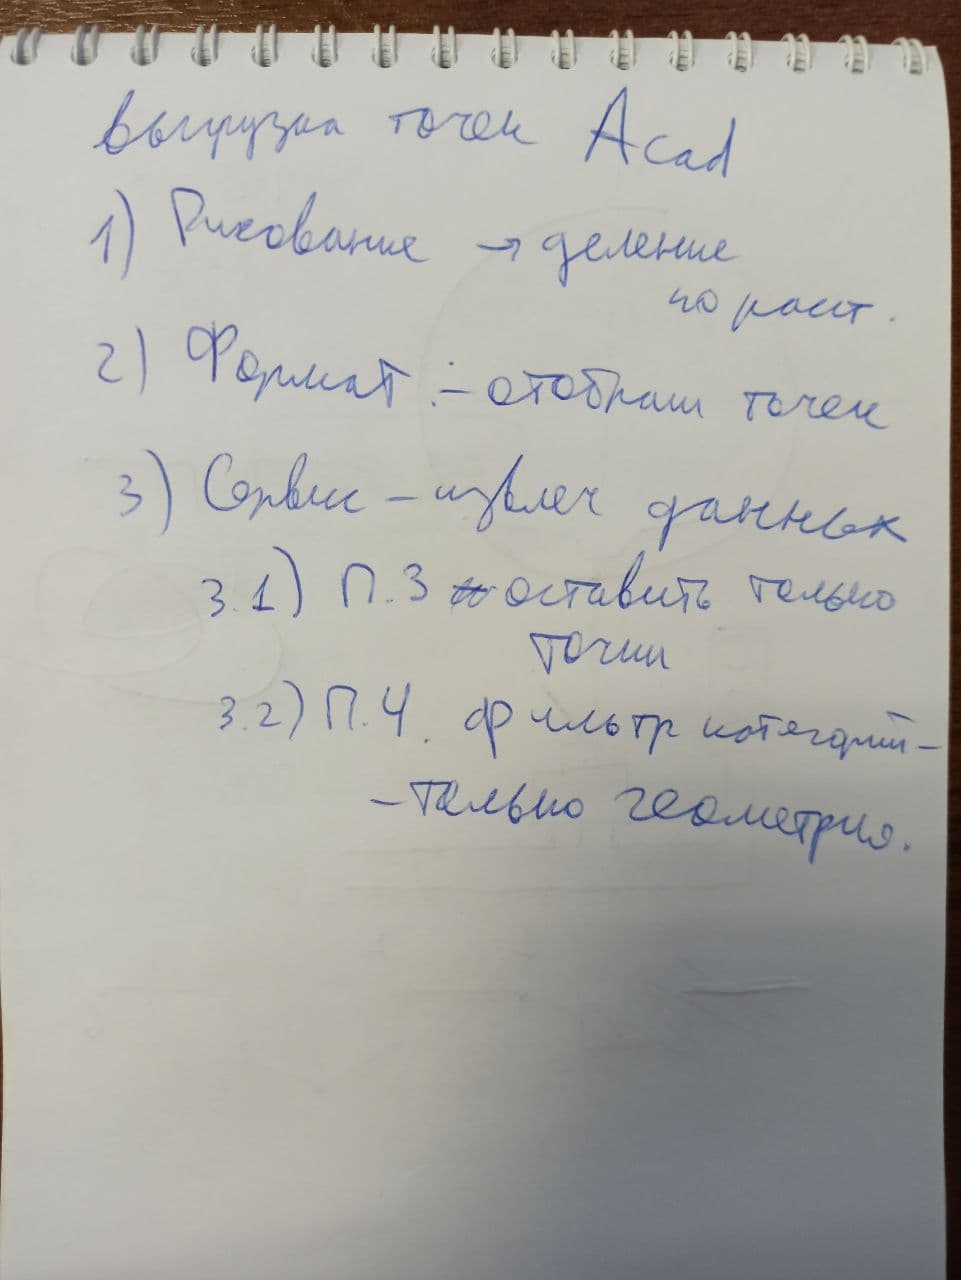 Выгрузка точек Acad
1) Рисование → деление
по раст.
2) Формат :- отображ точек
3) Сервис – извлеч данных
3.1) П.3 оставить только
точки
3.2) П.4. фильтр категорий –
– только геометрия.